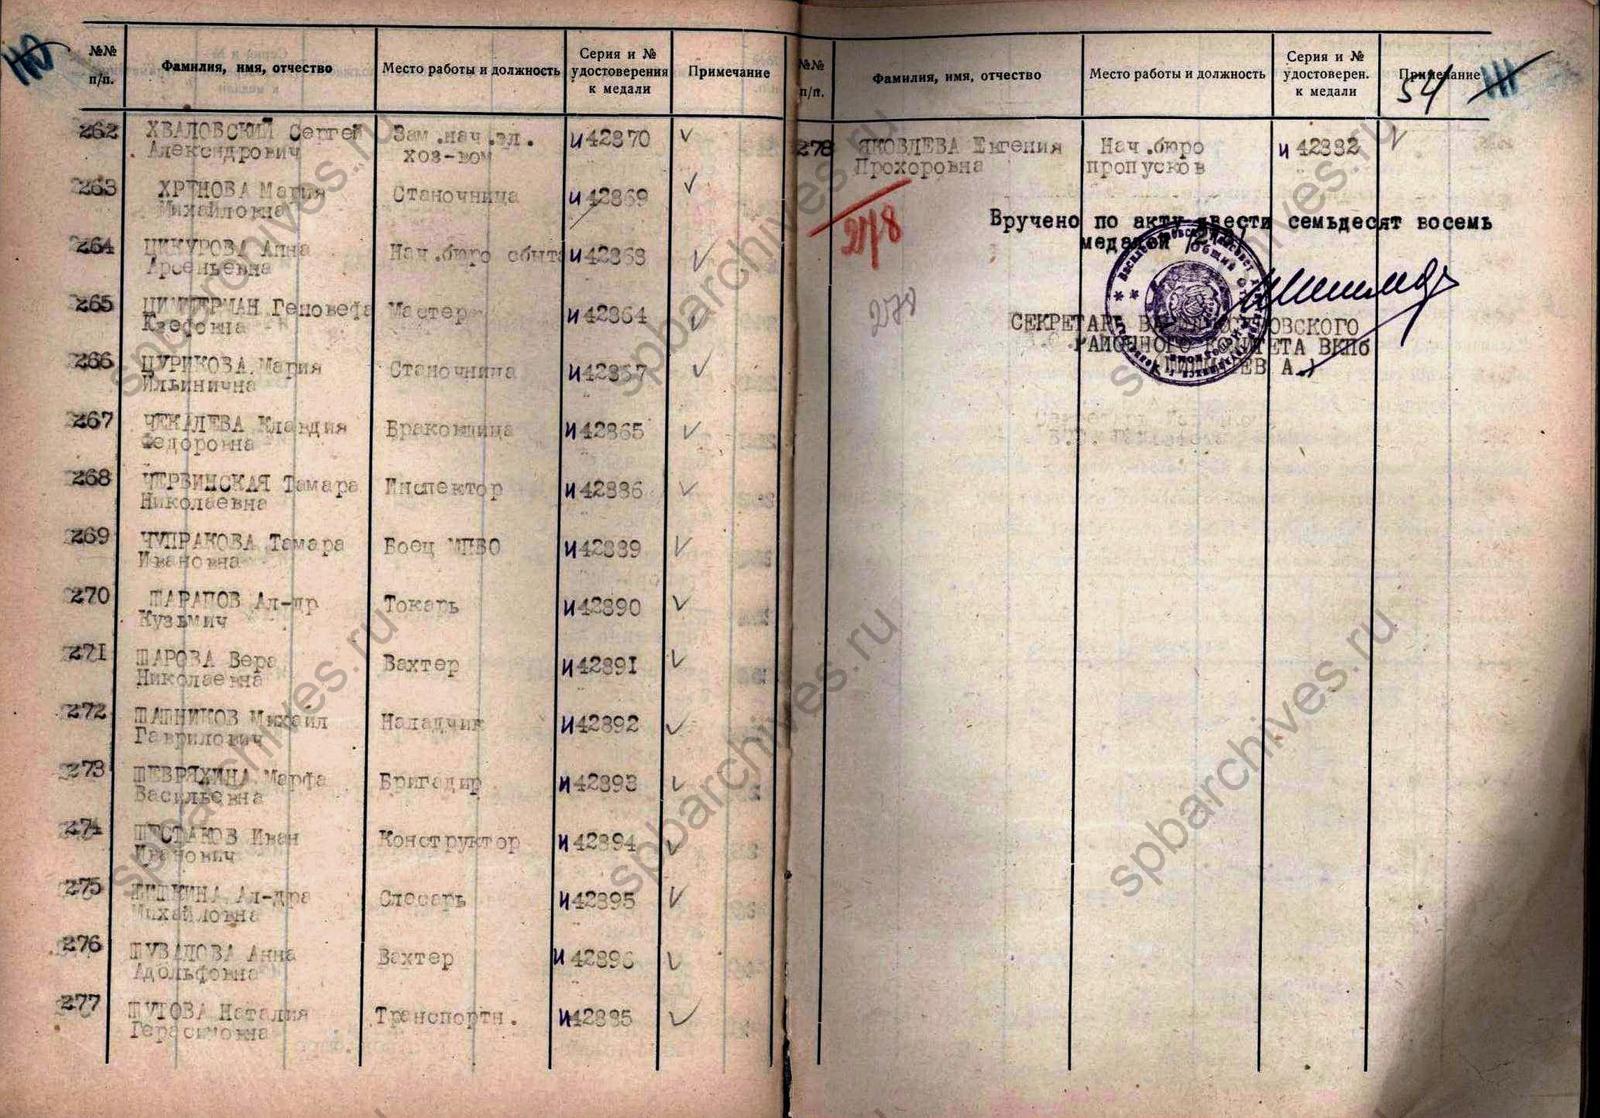 №№
п/п.
Фамилия, имя, отчество
Место работы и должность
Серия и №
удостоверения
к медали
Примечание
262 ХВАЛОВСКИЙ Сергей Зам.нач.эл. и 42870
Александрович хоз-вом
263 ХРЕНОВА Мария Станочница и 42869
Михайловна
264 Анна Нач.бюро сбыта и 42868
Арсеньевна
265 ЦИММЕРМАН Геновефа Мастер и 42864
266 ЦУРИКОВА Мария Станочница и 42867
Ильинична
267 ЧЕКАЛЕВА Клавдия Браковщица и 42865
Федоровна
268 ЧЕРВИНСКАЯ Тамара Инспектор и 42886
Николаевна
269 ЧУПРАКОВА Тамара Боец МПВО и 42889
Ивановна
270 ШАРАПОВ Ал-др Токарь и 42890
Кузьмич
271 ШАРОВА Вера Вахтер и 42891
Николаевна
272 Михаил Наладчик и 42892
Гаврилович
273 ШЕВРЯХИНА Марфа Бригадир и 42893
Васильевна
274 ШЕСТАКОВ Иван Конструктор и 42894
Иванович
275 Ал-дра Слесарь и 42895
Михайловна
276 ШУВАЛОВА Анна Вахтер и 42896
Адольфовна
277 Наталия Транспортн. и 42885
Герасимовна
№№
п/п.
Фамилия, имя, отчество
Место работы и должность
Серия и №
удостоверен.
к медали
Примечание
54 111
278 ЯКОВЛЕВА Евгения Нач.бюро и 42882
Прохоровна пропусков
278
Вручено по акту двести семьдесят восемь
медалей
278
СЕКРЕТАРЬ ВАСИЛЕОСТРОВСКОГО
РАЙОННОГО КОМИТЕТА ВКПб
А.
spbarchives.ru